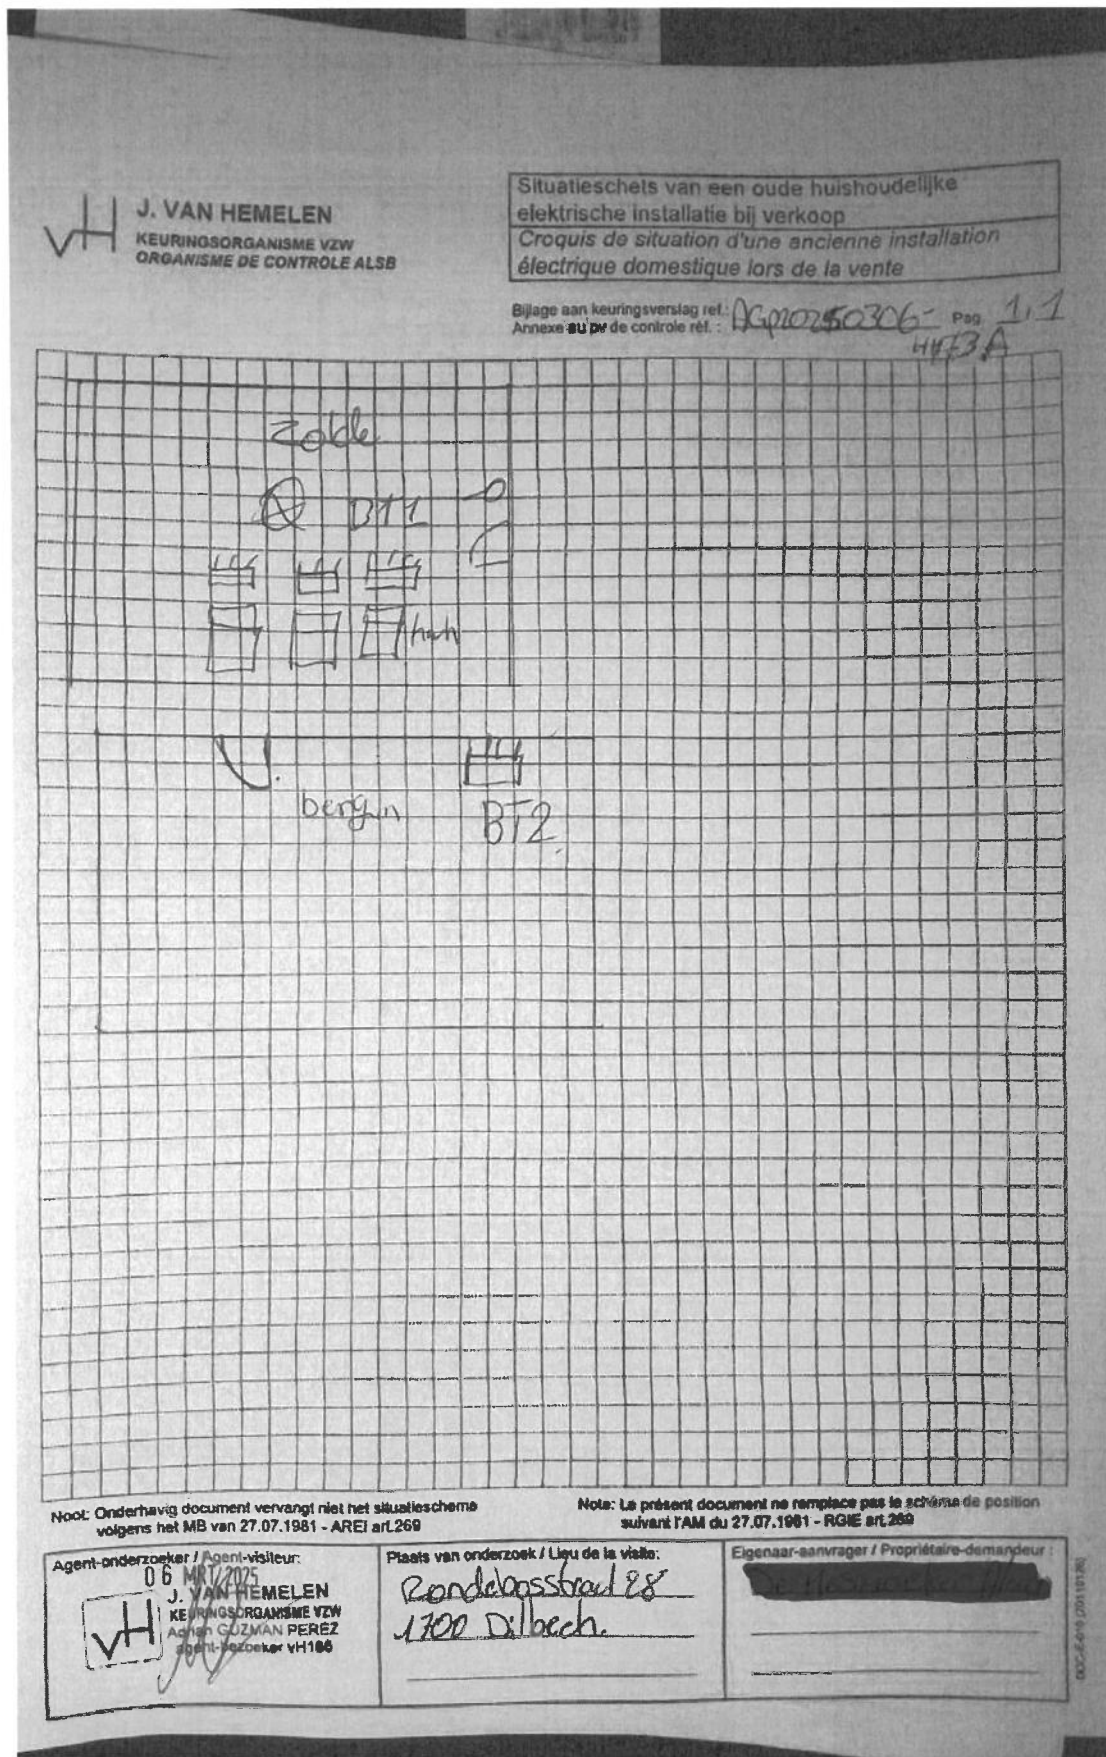 J. VAN HEMELEN
KEURINGSORGANISME VZW
ORGANISME DE CONTROLE ALSB
Situatieschets van een oude huishoudelijke
elektrische installatie bij verkoop
Croquis de situation d'une ancienne installation
électrique domestique lors de la vente
Bijlage aan keuringsverslag ref.:
Annexe au pv de controle réf. :
Pag. 1.1
BT2
Noot: Onderhavig document vervangt niet het situatieschema
volgens het MB van 27.07.1981 - AREI art.269
Nota: Le présent document ne remplace pas le schéma de position
suivant l'AM du 27.07.1981 - RGIE art.269
Agent-onderzoeker / Agent-visiteur:
06 MRT 2025
J. VAN HEMELEN
KEURINGSORGANISME VZW
Adrian GUZMAN PEREZ
agent-bezoeker vH186
Plaats van onderzoek / Lieu de la visite:
28
1700 Dilbech.
Eigenaar-aanvrager / Propriétaire-demandeur :